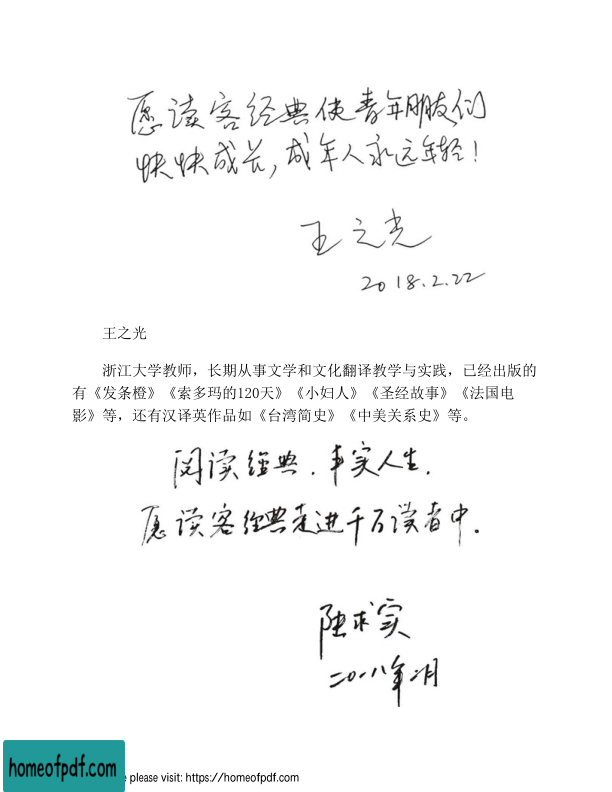 愿读客经典使青年朋友们
快快成长，成年人永远年轻！
王之光
2018.2.22
王之光
浙江大学教师，长期从事文学和文化翻译教学与实践，已经出版的
有《发条橙》《索多玛的120天》《小妇人》《圣经故事》《法国电
影》等，还有汉译英作品如《台湾简史》《中美关系史》等。
阅读经典．丰实人生．
愿读客经典走进千万读者中．
陆求实
二〇一八年二月
homeofpdf.com
e please visit: https://homeofpdf.com